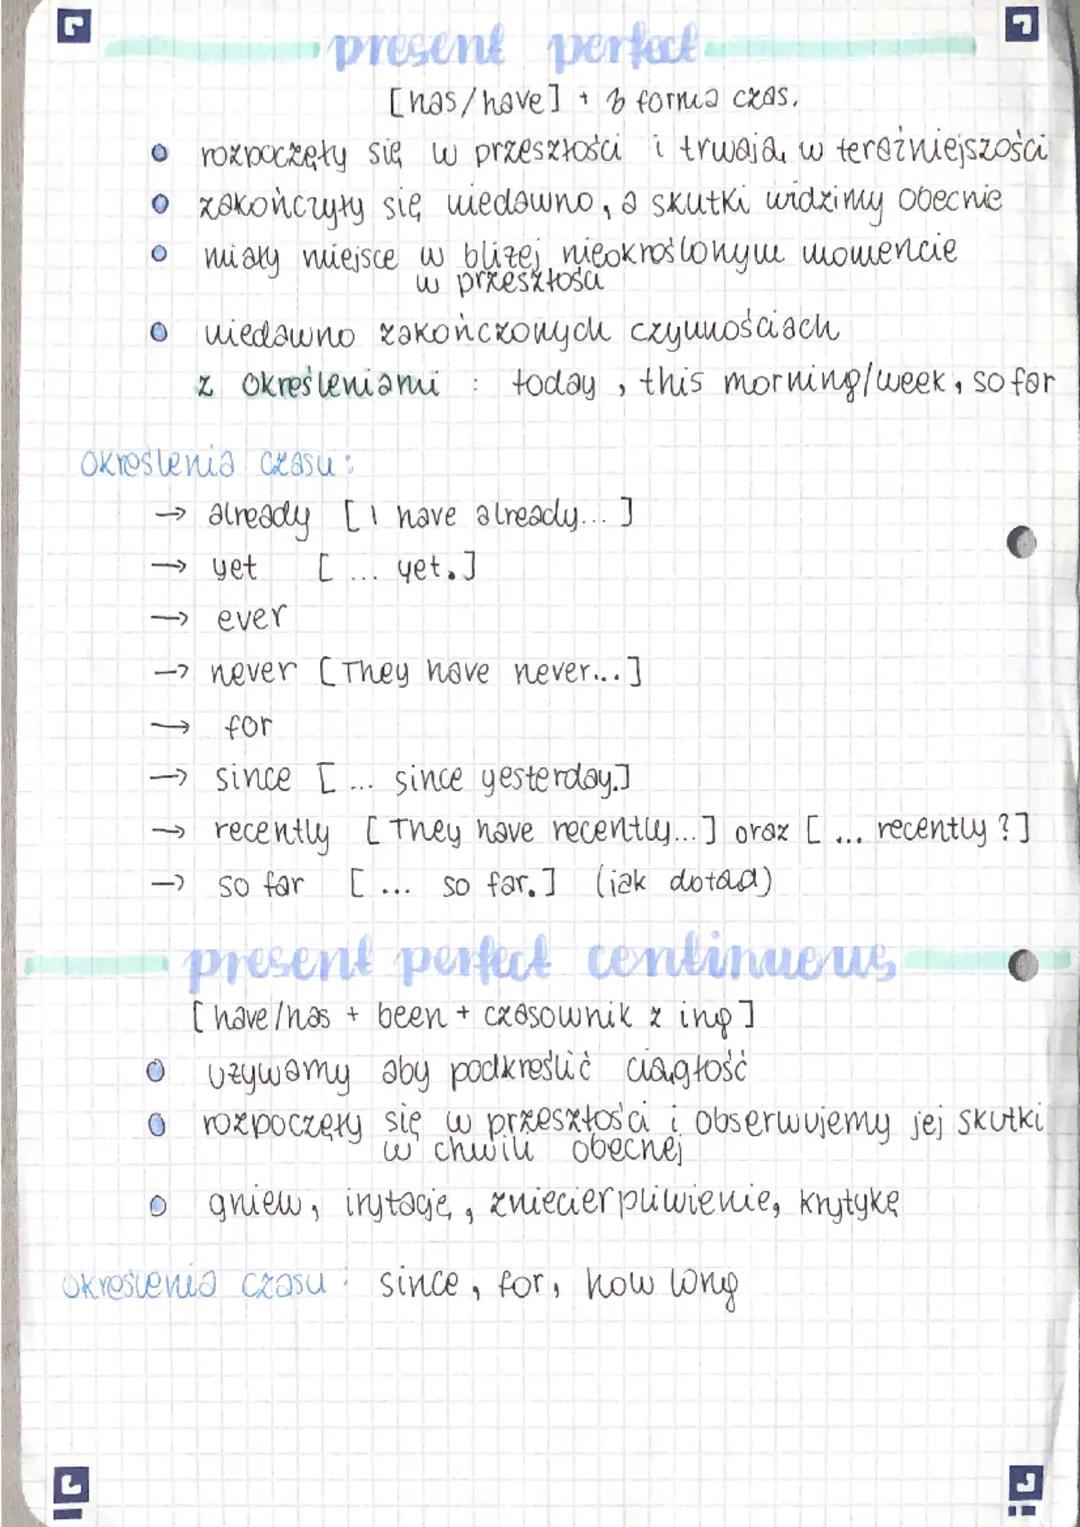 present perfect
[has/have] + 3 forma czas.
rozpoczęły się w przeszłości i trwają w teraźniejszości
zakończyły się niedawno, a skutki widzimy obecnie
miały miejsce w bliżej nieokreślonym momencie
w przeszłości
niedawno zakończonych czynnościach
z określeniami : today, this morning/week, so far
określenia czasu:
→ already [I have already...]
→ yet [... yet.]
→ ever
→ never [They have never...]
→ for
→ since [... since yesterday.]
→ recently [They have recently...] oraz [... recently?]
→ so far [... so far.] (jak dotąd)
present perfect continueus
[have/has + been + czasownik z ing]
używamy aby podkreślić ciągłość
rozpoczęły się w przeszłości i obserwujemy jej skutki
w chwili obecnej
gniew, irytację, zniecierpliwienie, krytykę
określenia czasu: since, for, how long